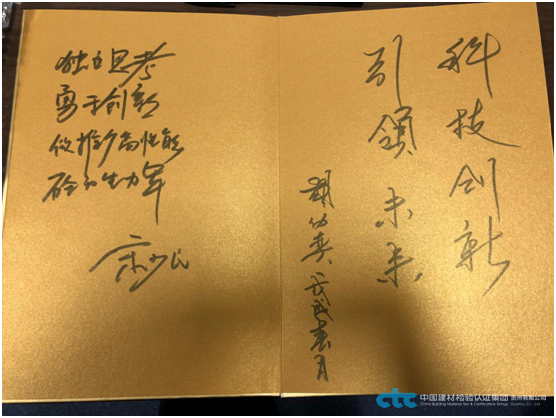 独立思考
勇于创新
做推广高性能
砼的生力军
宋少民
科技创新
引领未来
戊戌春月
ctc 中国建材检验认证集团 贵州有限公司
China Building Material Test & Certification Group Guizhou Co., Ltd